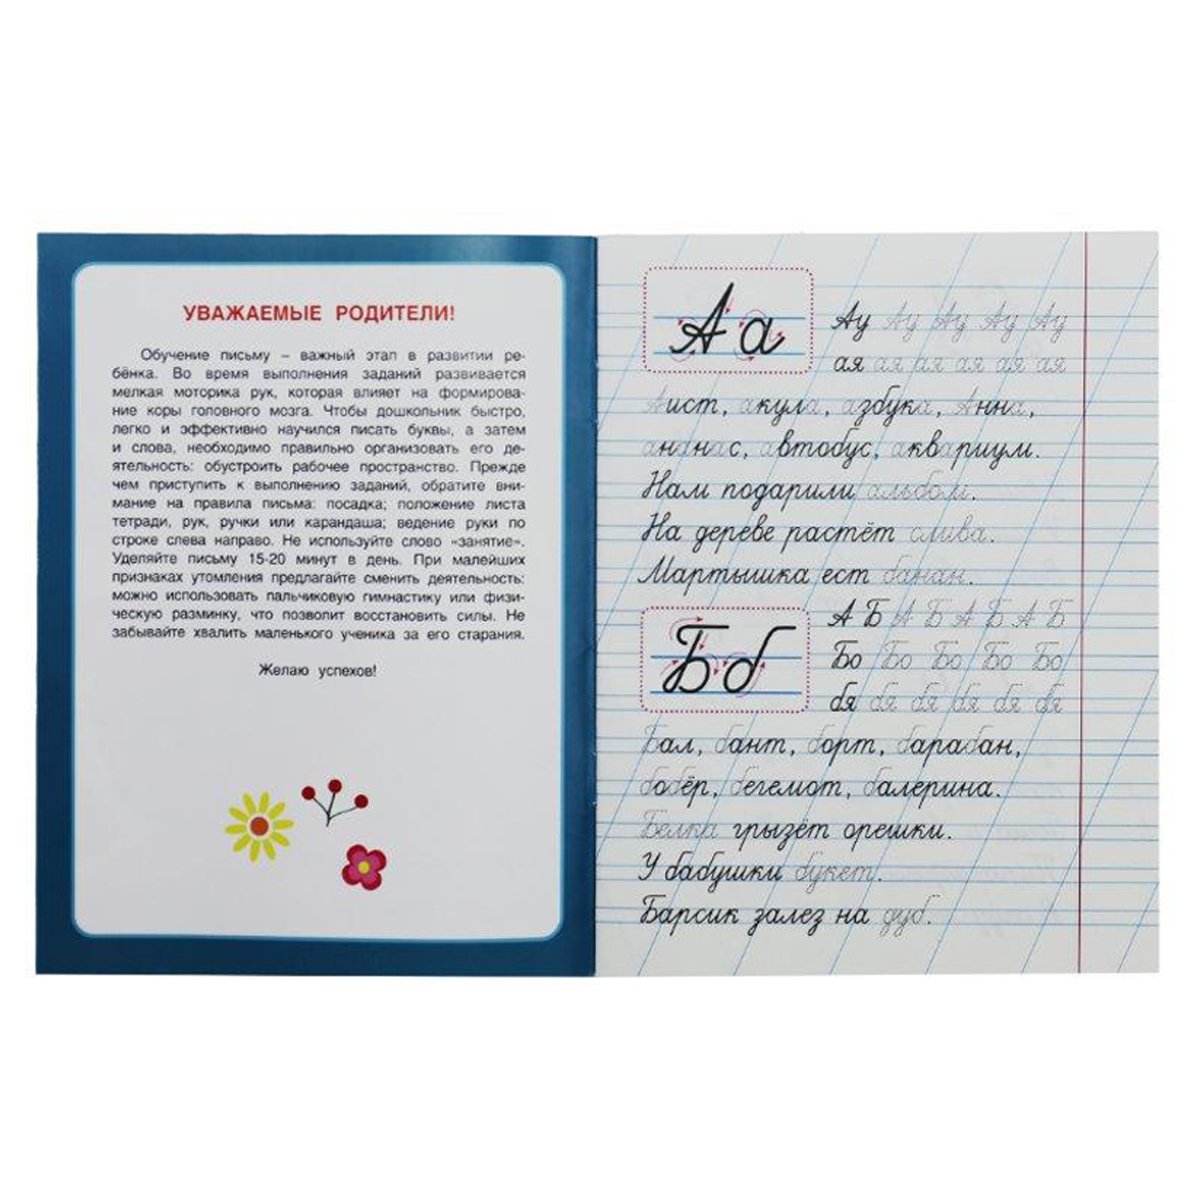 УВАЖАЕМЫЕ РОДИТЕЛИ!
Обучение письму – важный этап в развитии ре-
бёнка. Во время выполнения заданий развивается
мелкая моторика рук, которая влияет на формирова-
ние коры головного мозга. Чтобы дошкольник быстро,
легко и эффективно научился писать буквы, а затем
и слова, необходимо правильно организовать его де-
ятельность: обустроить рабочее пространство. Прежде
чем приступить к выполнению заданий, обратите вни-
мание на правила письма: посадка; положение листа
тетради, рук, ручки или карандаша; ведение руки по
строке слева направо. Не используйте слово «занятие».
Уделяйте письму 15-20 минут в день. При малейших
признаках утомления предлагайте сменить деятельность:
можно использовать пальчиковую гимнастику или физи-
ческую разминку, что позволит восстановить силы. Не
забывайте хвалить маленького ученика за его старания.
Желаю успехов!
А а
Ау Ау Ау Ау Ау
ая ая ая ая ая ая
Аист, акула, азбука, Анна,
ананас, автобус, аквариум.
Нам подарили альбом.
На дереве растёт слива.
Мартышка ест банан.
Б б
А Б А Б А Б А Б
Бо Бо Бо Бо Бо
бя бя бя бя бя бя
Бал, бант, борт, барабан,
бобёр, бегемот, балерина.
Белка грызёт орешки.
У бабушки букет.
Барсик залез на дуб.